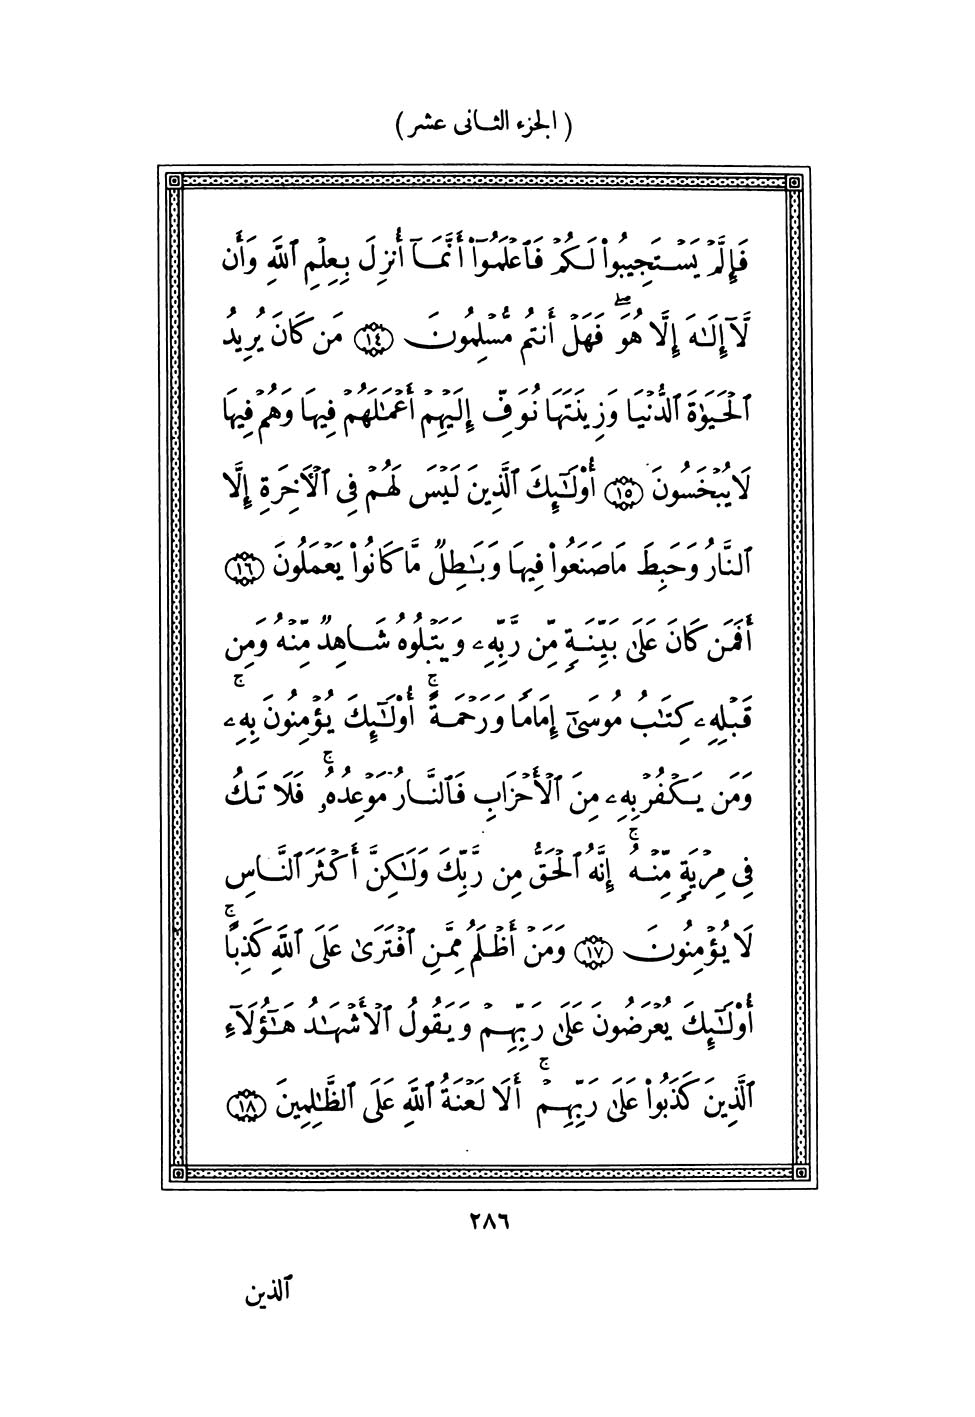 ( الجزء الثانى عشر )
فَإِلَّمْ يَسْتَجِيبُوا۟ لَكُمْ فَٱعْلَمُوٓا۟ أَنَّمَآ أُنزِلَ بِعِلْمِ ٱللَّهِ وَأَن
لَّآ إِلَـٰهَ إِلَّا هُوَ ۖ فَهَلْ أَنتُم مُّسْلِمُونَ ١٤ مَن كَانَ يُرِيدُ
ٱلْحَيَوٰةَ ٱلدُّنْيَا وَزِينَتَهَا نُوَفِّ إِلَيْهِمْ أَعْمَـٰلَهُمْ فِيهَا وَهُمْ فِيهَا
لَا يُبْخَسُونَ ١٥ أُو۟لَـٰٓئِكَ ٱلَّذِينَ لَيْسَ لَهُمْ فِى ٱلْـَٔاخِرَةِ إِلَّا
ٱلنَّارُ وَحَبِطَ مَا صَنَعُوا۟ فِيهَا وَبَـٰطِلٌ مَّا كَانُوا۟ يَعْمَلُونَ ١٦
أَفَمَن كَانَ عَلَىٰ بَيِّنَةٍ مِّن رَّبِّهِۦ وَيَتْلُوهُ شَاهِدٌ مِّنْهُ وَمِن
قَبْلِهِۦ كِتَـٰبُ مُوسَىٰٓ إِمَامًا وَرَحْمَةً ۚ أُو۟لَـٰٓئِكَ يُؤْمِنُونَ بِهِۦ ۚ
وَمَن يَكْفُرْ بِهِۦ مِنَ ٱلْأَحْزَابِ فَٱلنَّارُ مَوْعِدُهُۥ ۚ فَلَا تَكُ
فِى مِرْيَةٍ مِّنْهُ ۚ إِنَّهُ ٱلْحَقُّ مِن رَّبِّكَ وَلَـٰكِنَّ أَكْثَرَ ٱلنَّاسِ
لَا يُؤْمِنُونَ ١٧ وَمَنْ أَظْلَمُ مِمَّنِ ٱفْتَرَىٰ عَلَى ٱللَّهِ كَذِبًا ۚ
أُو۟لَـٰٓئِكَ يُعْرَضُونَ عَلَىٰ رَبِّهِمْ وَيَقُولُ ٱلْأَشْهَـٰدُ هَـٰٓؤُلَآءِ
ٱلَّذِينَ كَذَبُوا۟ عَلَىٰ رَبِّهِمْ ۚ أَلَا لَعْنَةُ ٱللَّهِ عَلَى ٱلظَّـٰلِمِينَ ١٨
٢٨٦
ٱلذين